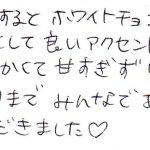 すると ホワイトチョコ
として 良いアクセン
かくて 甘すぎず
まで みんなで
だきました♡